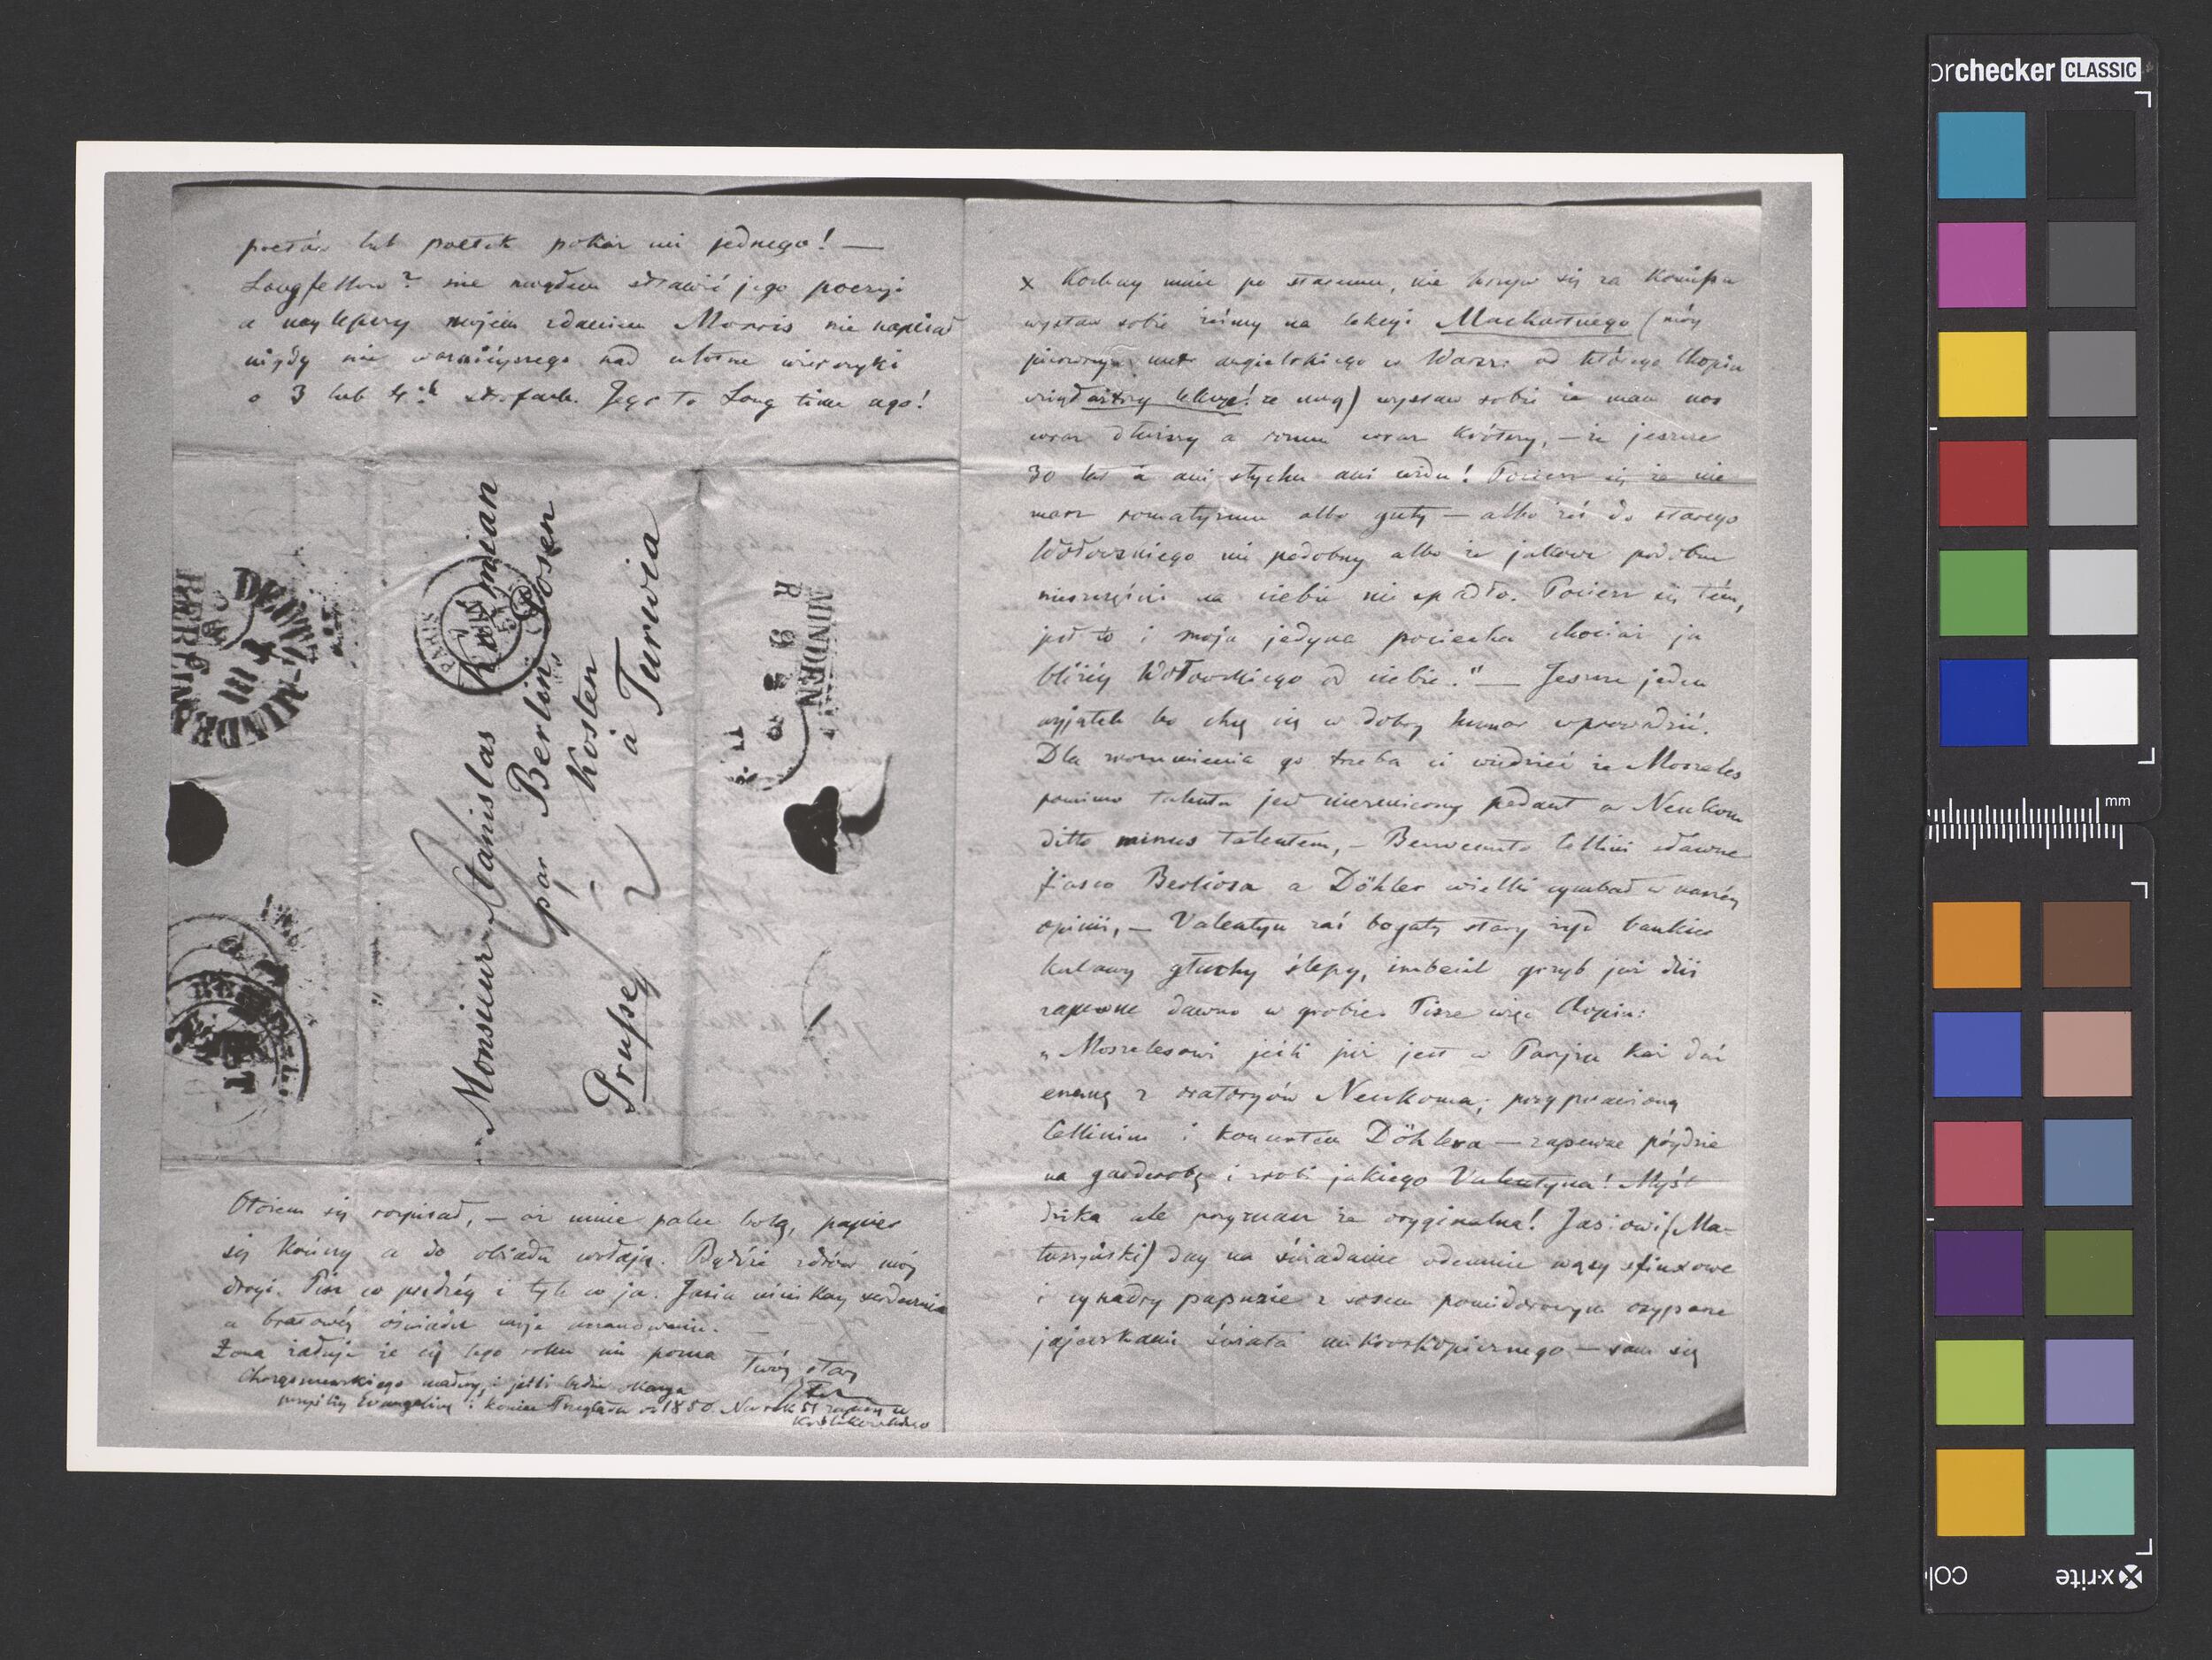 poetów lub poetek pokaż mi jednego! —
Longfellow? nie mogłem strawić jego poezyi
a naylepszy mojém zdaniem Morris nie napisał
nigdy nic ważniéyszego nad ulotne wierszyki
o 3 lub 4ch strofach. Jego to Long time ago!
Monsieur Stanislas Koźmian
par Berlin, Posen
Kosten
à Turwia
Prusse
PARIS
MINDEN
9 3
BERLIN
DEUTZ-MINDEN
III
Otożem się rozpisał, — aż mnie palce bolą, papier
się kończy a do obiadu wołają. Bądźże zdrów mój
drogi. Pisz co prędzéy i tyle co ja. Jasia uściskay serdecznie
a bratowéy oświadcz moje uszanowanie. —
Żona żałuje że cię tego roku nie pozna
Twóy stary
przyślij Evangelinę i koniec Przeglądu od 1850. Na rok 51 zapisz u
Królikowskiego
x Kochay mnie po staremu, nie
wystaw sobie żeśmy na lekcyi Machartnego (móy
pierwszy metr angielskiego w Warsz: od którego Chopin
wziął cztéry lekcye! ze mną) wystaw sobie że mam nos
coraz dłuższy a rozum coraz krótszy, — że jeszcze
30 lat a ani słychu ani widu! Pociesz się że nie
masz romatyzmu albo guty — albo żeś do starego
Wołowskiego nie podobny albo że jakowe podobne
nieszczęście na ciebie nie spadło. Pociesz się tém,
jest to i moja jedyna pociecha chociaż ja
bliżéy Wołowskiego od ciebie." — Jeszcze jeden
wyjątek bo chcę cię w dobry humor wprowadzić.
Dla zrozumienia go trzeba ci wiedzieć że Moszeles
pomimo talentu jest niezmierny pedant a Neukom
ditto minus talentem, — Benvenuto Cellini sławne
fiasco Berlioza a Döhler wielki cymbał w naszéy
opinii, — Valentyn zaś bogaty stary żyd bankier
kulawy głuchy ślepy, imbecil grzyb już dziś
zapewne dawno w grobie. Pisze więc Chopin:
„Moszelesowi jeśli już jest w Paryżu każ dać
enemę z oratoryów Neukoma; przyprawioną
Cellinim i koncertem Döhlera — zapewne póydzie
na garderobę i zrobi jakiego Valentyna! Myśl
dzika ale przyznasz że oryginalna! Jasiowi (Ma-
tuszyński) day na śniadanie odemnie wąsy sfinxowe
i cynadry papuzie z sosem pomidorowym osypane
jajeczkami świata mikroskopicznego — sam się
colorchecker CLASSIC
mm
x·rite